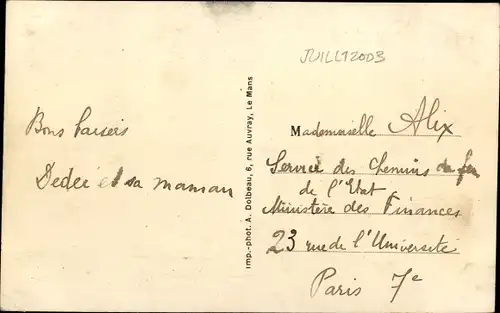 JUILLT2003
Bons baisers
Dedei et sa maman
Imp.-phot. A. Dolbeau, 6, rue Auvray, Le Mans
Mademoiselle Alix
Service des Chemins de fer
de l'Etat
Ministère des Finances
23 rue de l'Université
Paris 7e